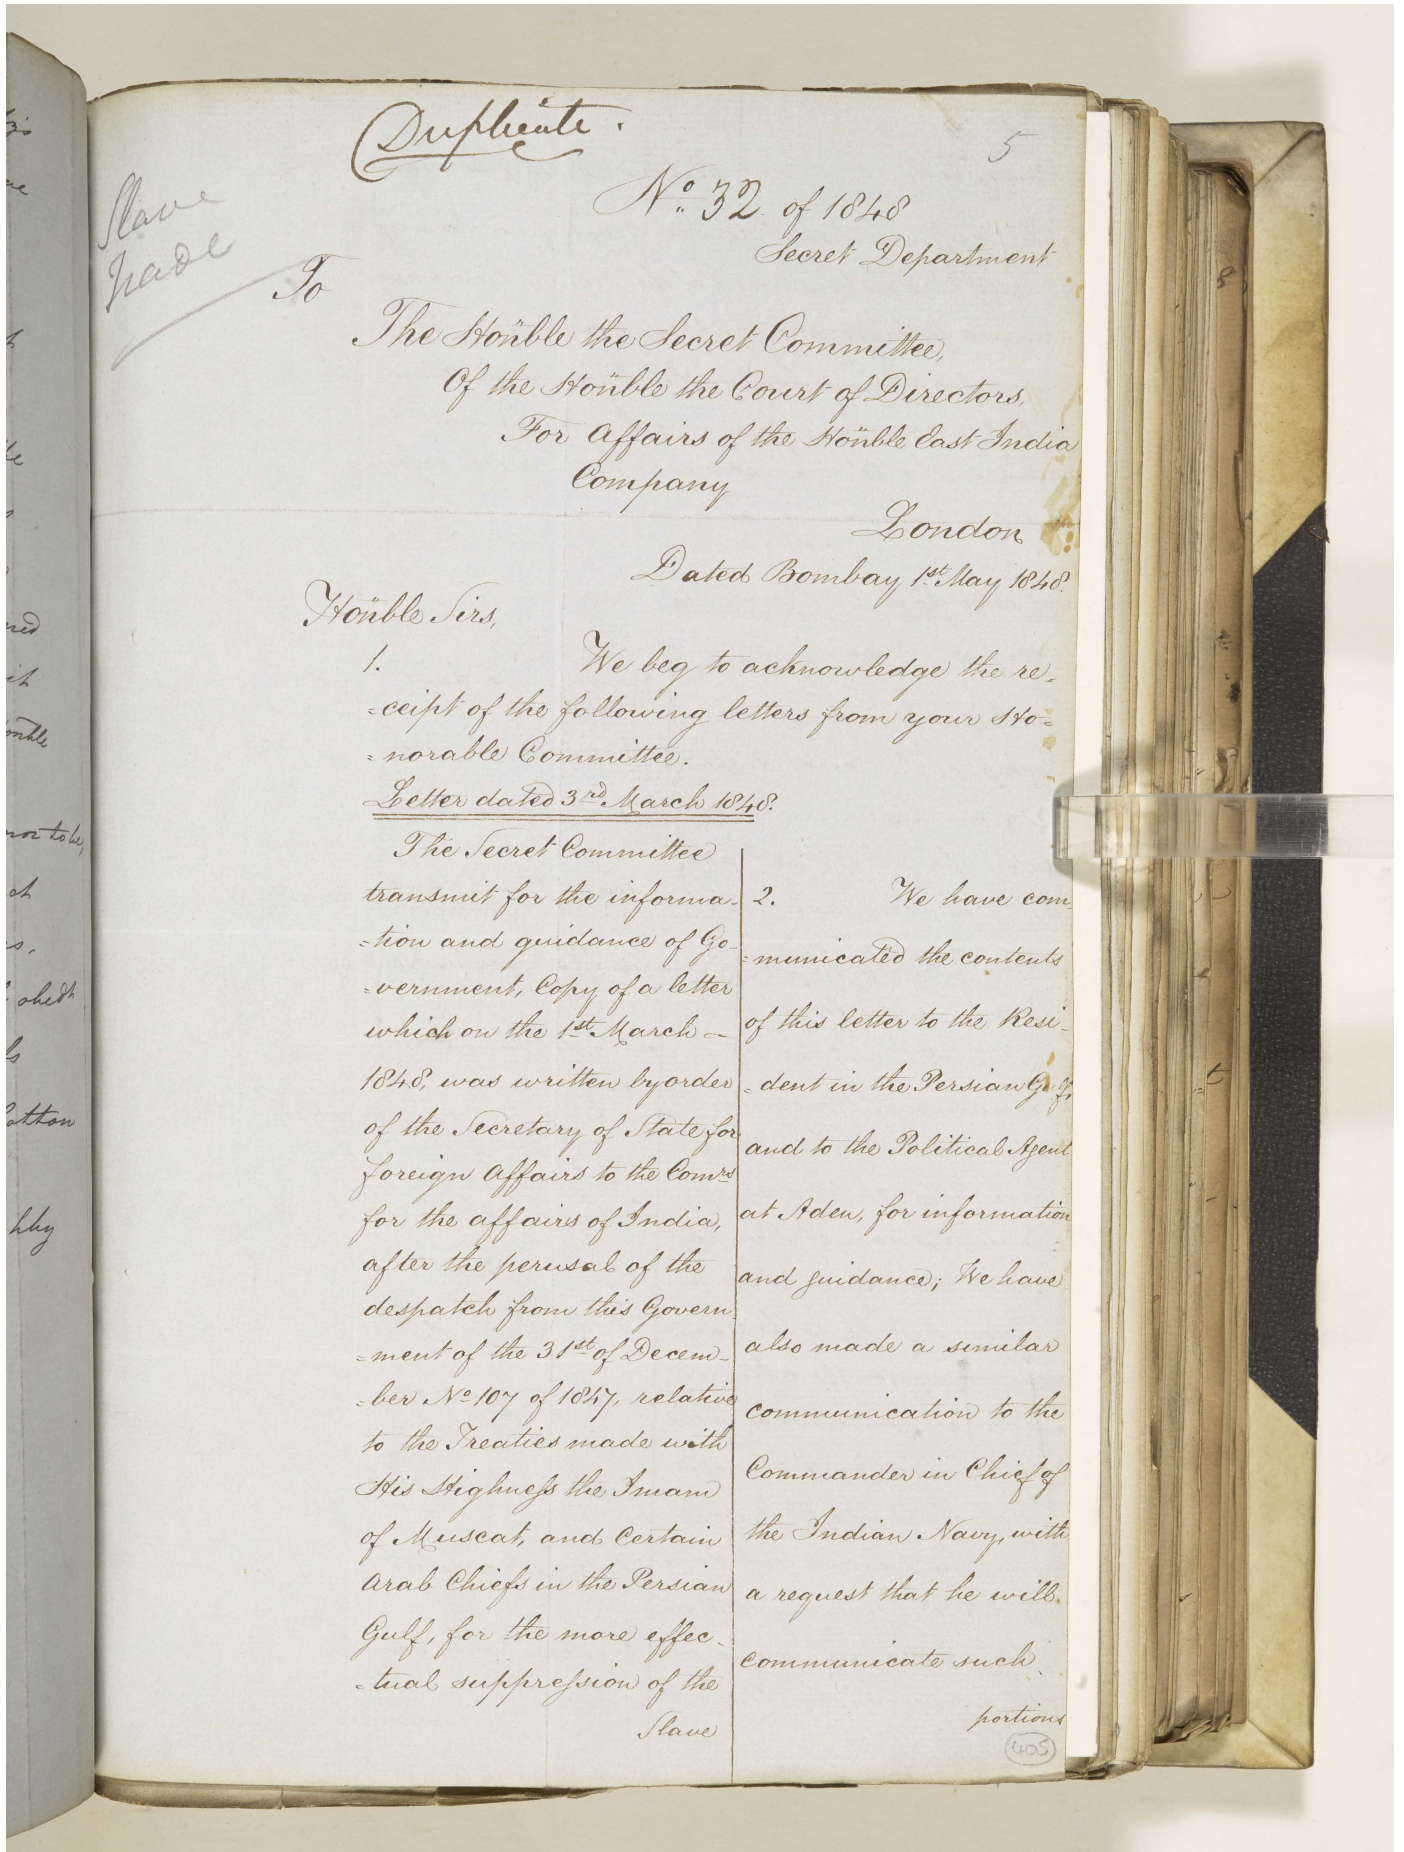 Duplicate.
5
No. 32 of 1848
Secret Department
Slave
Trade
To
The Honble the Secret Committee,
Of the Honble the Court of Directors,
For Affairs of the Honble East India
Company
London
Dated Bombay 1st May 1848.
Honble Sirs,
1. We beg to acknowledge the re-
=ceipt of the following letters from your Ho=
=norable Committee.
Letter dated 3rd March 1848.
The Secret Committee
transmit for the informa-
=tion and guidance of Go-
=vernment, Copy of a letter
which on the 1st March —
1848, was written by order
of the Secretary of State for
foreign Affairs to the Comrs
for the affairs of India,
after the perusal of the
despatch from this Govern
=ment of the 31st of Decem-
=ber No 107 of 1847, relative
to the Treaties made with
His Highness the Imam
of Muscat, and Certain
Arab Chiefs in the Persian
Gulf, for the more effec-
=tual suppression of the
Slave
2. We have com-
=municated the contents
of this letter to the Resi-
=dent in the Persian Gulf,
and to the Political Agent
at Aden, for information
and guidance; We have
also made a similar
communication to the
Commander in Chief of
the Indian Navy, with
a request that he will
communicate such
portions
405
not to be,
obedt
Cotton